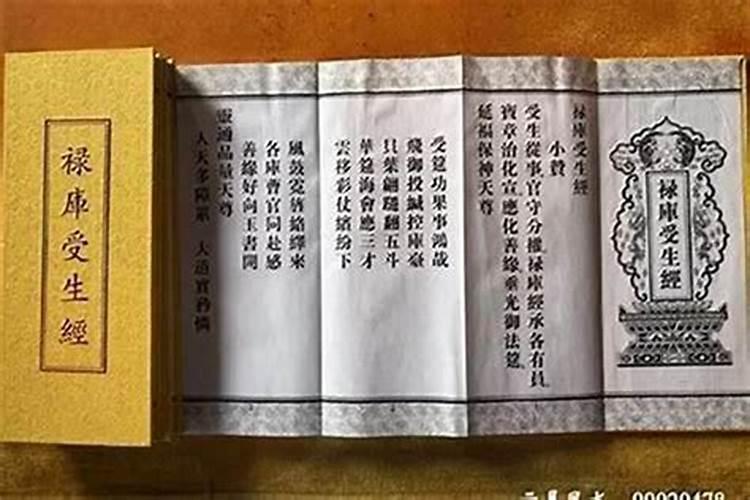 祿庫受生經
祿庫受生經
祿庫受生經
小贊
受生從事官守分權祿庫經承各有員
寶章治化宣應化善緣垂光御法筵
延福保神天尊
受筵功果事鴻哉
飛御投緘控庫臺
貝葉翩翻五斗
華筵海會應三才
雲移彩仗繽紛下
風鼓霓旌絡繹來
各庫曹官同赴感
善緣好向玉書開
靈通品量天尊
人天多障 大道實矜憐